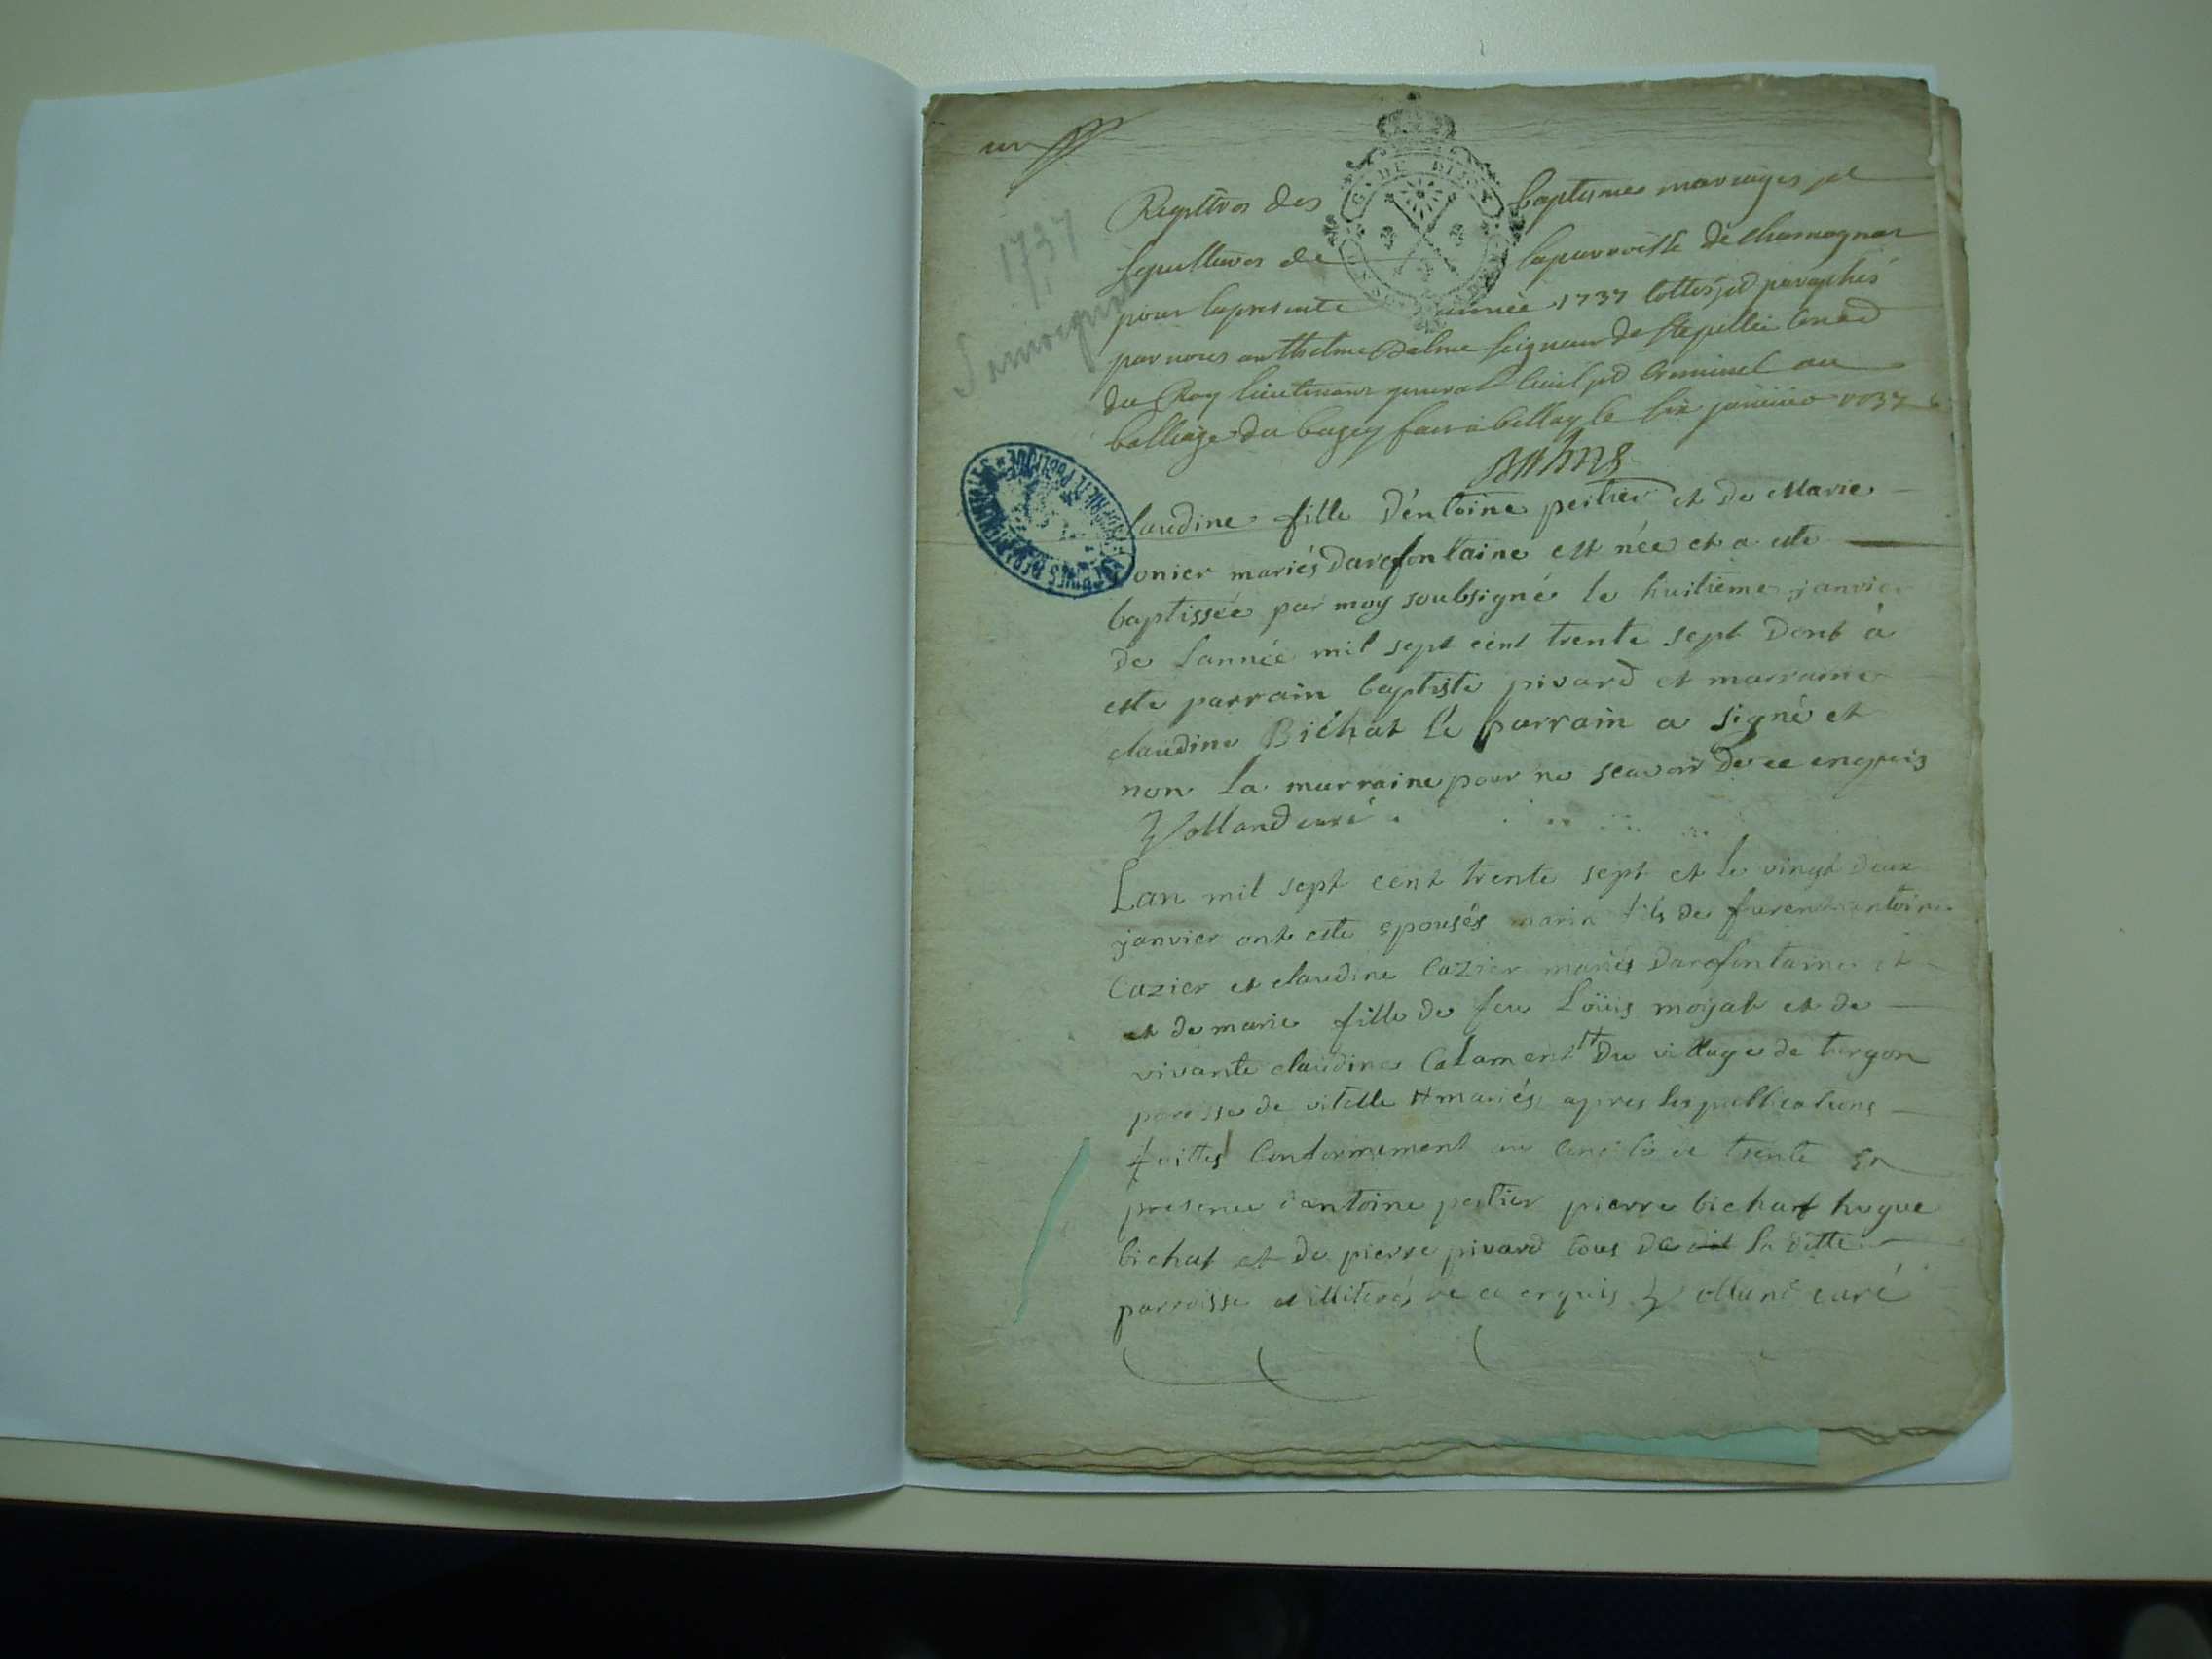 un
G. DE DIJON
1737
Registres des baptesmes mariages et
sepultures de la parroisse de chamagnar
pour la presente année 1737 cottes et paraphés
par nous anthelme Balme seigneur de
du Roy lieutenant general civil et criminel au
balliage du bugey fait a bellay le six janvier 1737
Balme
laudine fille d'entoine peitier et de Marie
onier mariés darefontaine est née et a este
baptissée par moy soubsigné le huitieme janvier
de Lannée mil sept cent trente sept Dont à
este parrain baptiste pivard et marraine
claudine Bichat le parrain a signé et
non la marraine pour ne scavoir de ce enquis
Volland curé
Lan mil sept cent trente sept et le vingt deux
janvier ont este epousés marin fils de antoine
Cozier et claudine Cozier mariés Darefontaine et
et de marie fille de feu Loüis moyat et de
vivante claudine Calament # Du village de
paroisse de # mariés apres les publications
faittes Conformement au Concile de trente En
presence d'antoine peitier pierre bichat hugue
bichat et de pierre pivard tous de la ditte
parroisse et illiterés de ce enquis Volland curé